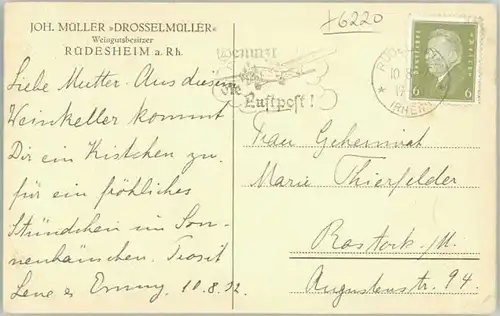 JOH. MÜLLER »DROSSELMÜLLER«
Weingutsbesitzer
RÜDESHEIM a. Rh.
+6220
Benutzt
die
Luftpost!
RÜDESHEIM
10.8.
(RHEIN)
Deutsches Reich
6 6
Liebe Mutter. Aus diesem
Weinkeller kommt
Dir ein Kistchen zu.
für ein fröhliches
Stündchen im Son-
nenhäuschen. Prosit
Lene & Emmy. 10.8.32.
Frau Geheimrat
Marie Thierfelder
Rostock. /M.
Augustenstr. 94.